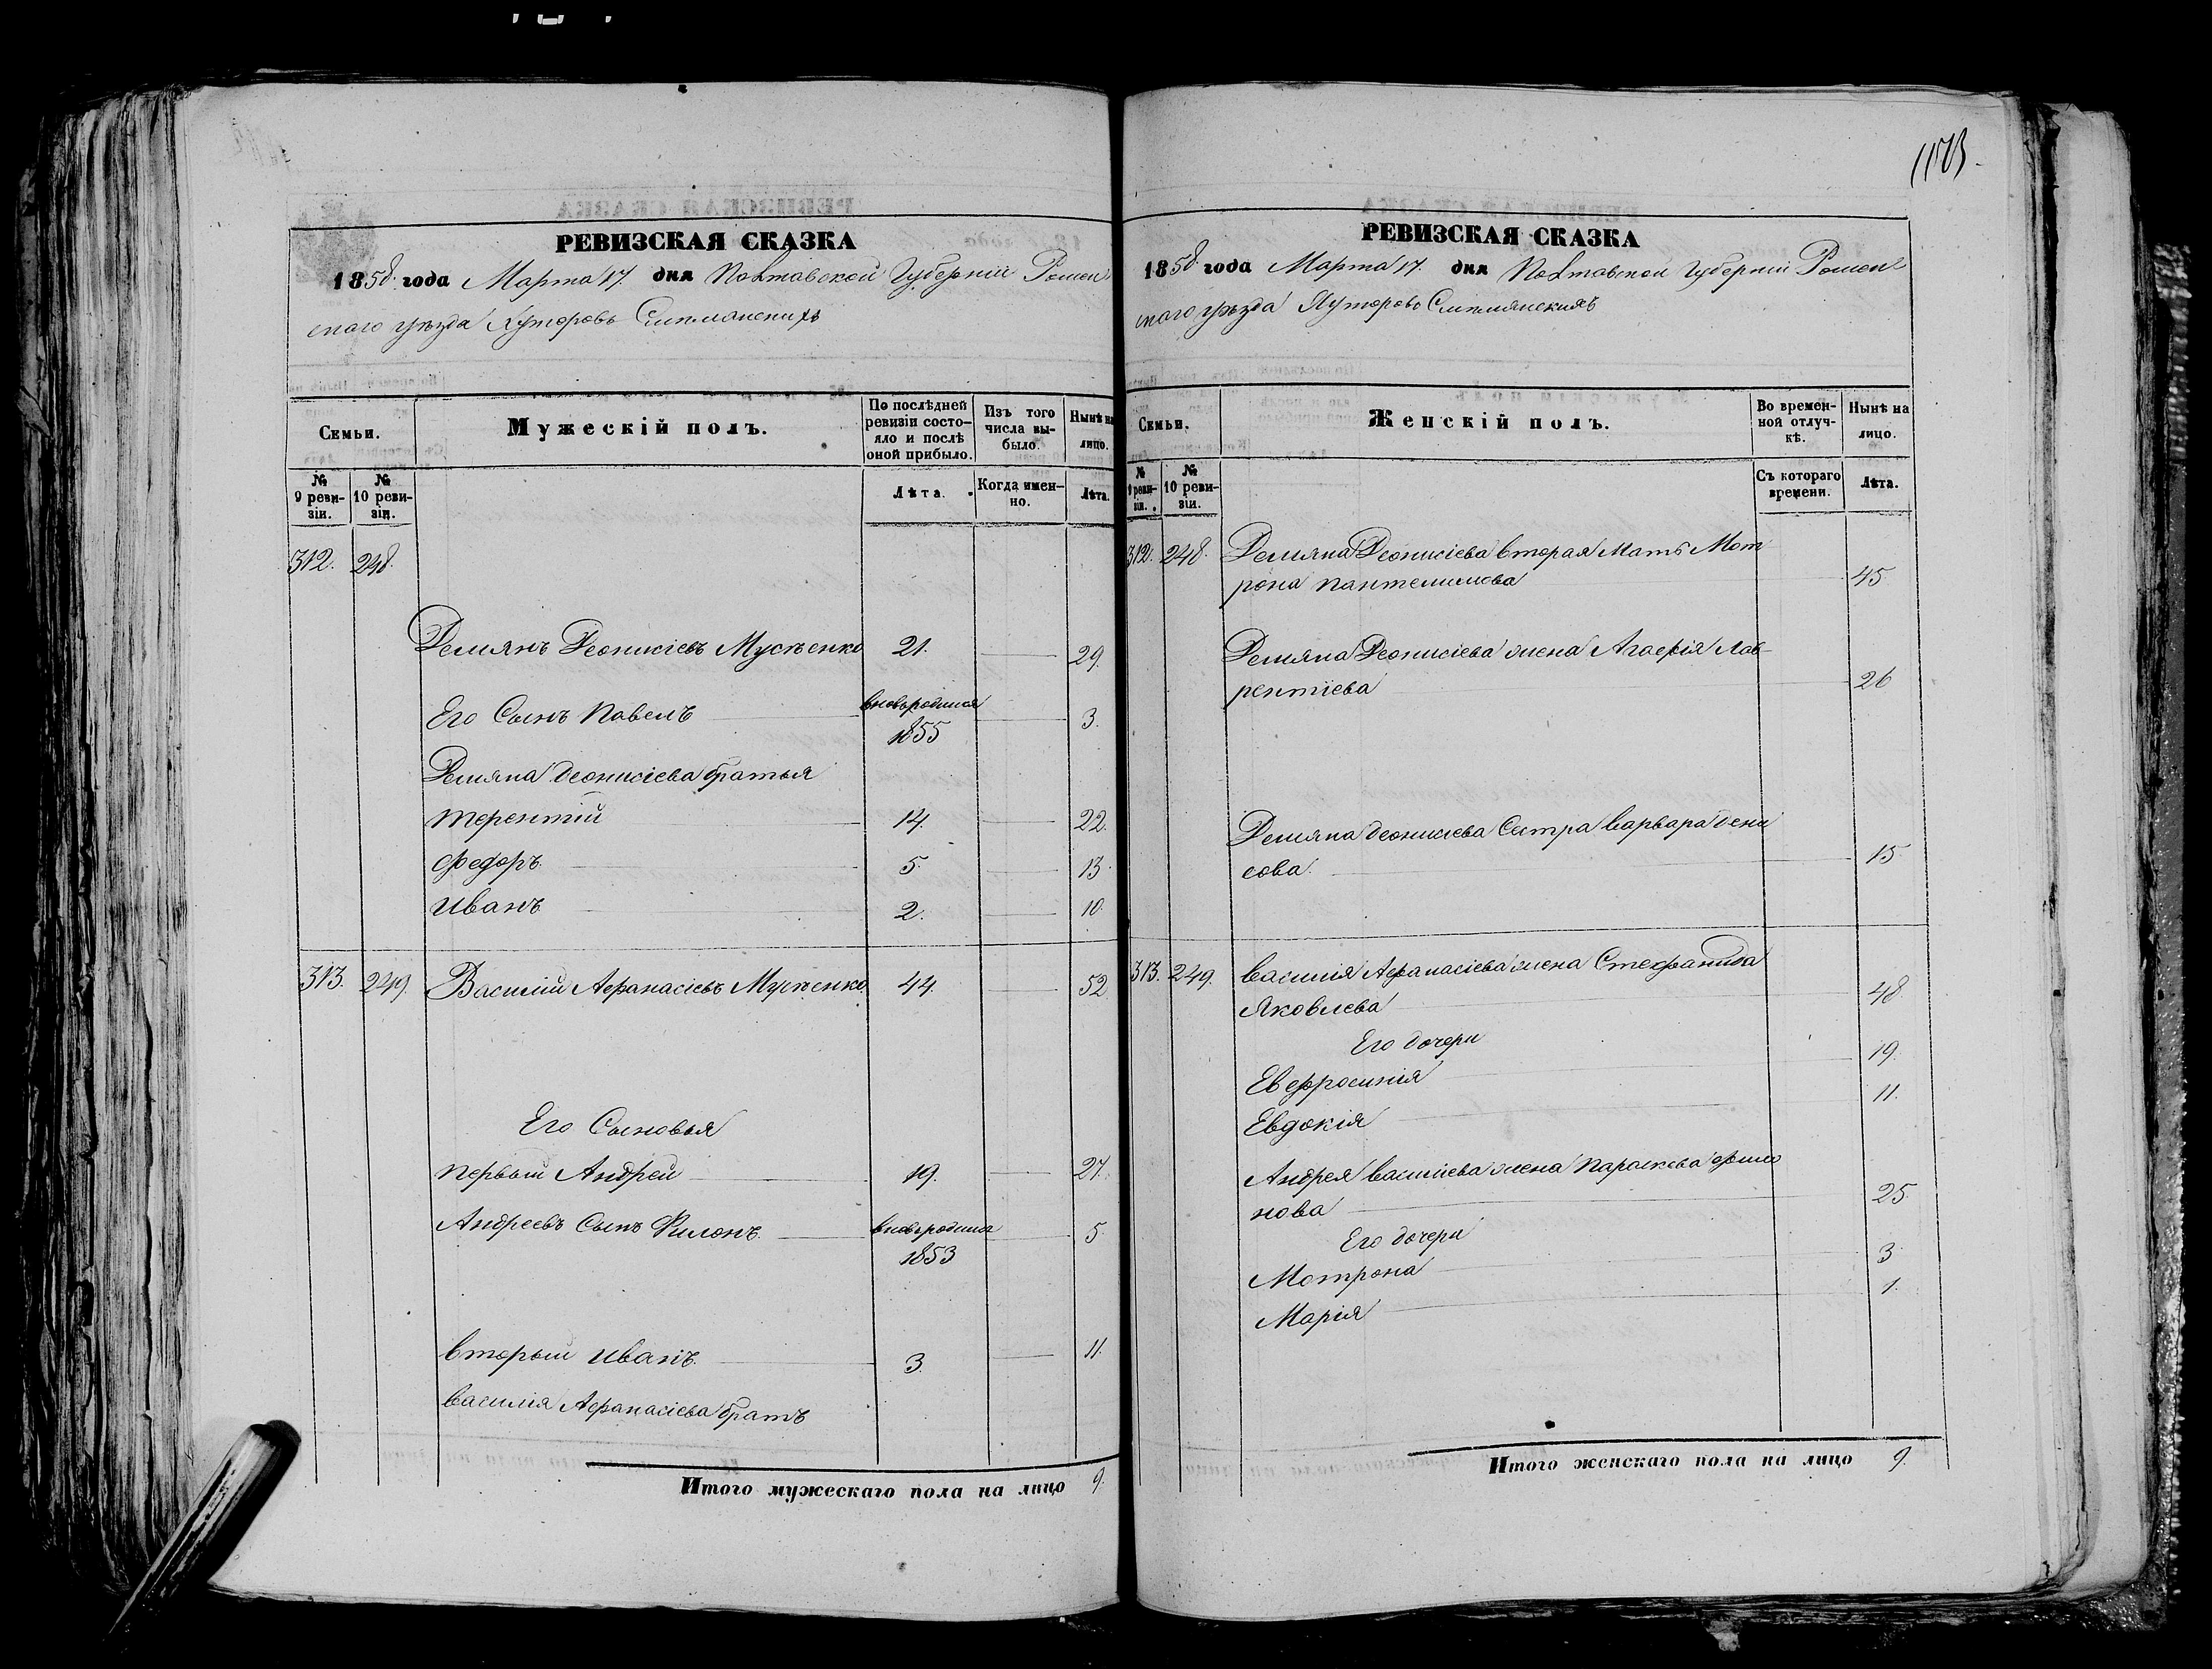 РЕВИЗСКАЯ СКАЗКА
1858 года Марта 17. дня Полтавской Губерніи Ромен
скаго уѣзда Хуторовъ
Семьи.
Мужескій полъ.
По послѣдней ревизіи состояло и послѣ оной прибыло.
Изъ того числа выбыло.
Нынѣ на лицо.
№ 9 ревизіи.
№ 10 ревизіи.
Лѣта.
Когда именно.
Лѣта.
312. 248.
Демянъ Деонисіевъ Мусѣенко 21. 29.
Его Сынъ Павелъ вновьродился 1855 3.
Демяна Деонисіева братья
Терентій 14. 22.
Федоръ 5. 13.
Иванъ 2. 10.
313. 249. Василій Афанасіевъ Мусѣенко 44. 52.
Его Сыновья
первый Андрей 19. 27.
Андреевъ Сынъ Филонъ вновьродился 1853 5.
вторый Иванъ 3. 11.
Василія Афанасіева братъ
Итого мужескаго пола на лицо 9.
1173.
РЕВИЗСКАЯ СКАЗКА
1858 года Марта 17. дня Полтавской Губерніи Ромен
скаго уѣзда Хуторовъ
Семьи.
Женскій полъ.
Во временной отлучкѣ.
Нынѣ на лицо.
№ 9 ревизіи.
№ 10 ревизіи.
Съ котораго времени.
Лѣта.
312. 248. Демяна Деонисіева вторая Мать Мот
рона Пантелимова 45
Демяна Деонисіева жена Агафія Лав-
рентіева 26
Демяна Деонисіева Сестра Варвара Дени
сова. 15
313. 249. Василія Афанасіева жена Стефанида
Яковлева 48.
Его дочери
Евфросинія 19.
Евдокія 11.
Андрея Василіева жена Параскева Фили
нова 25.
Его дочери
Мотрона 3
Марія 1.
Итого женскаго пола на лицо 9.